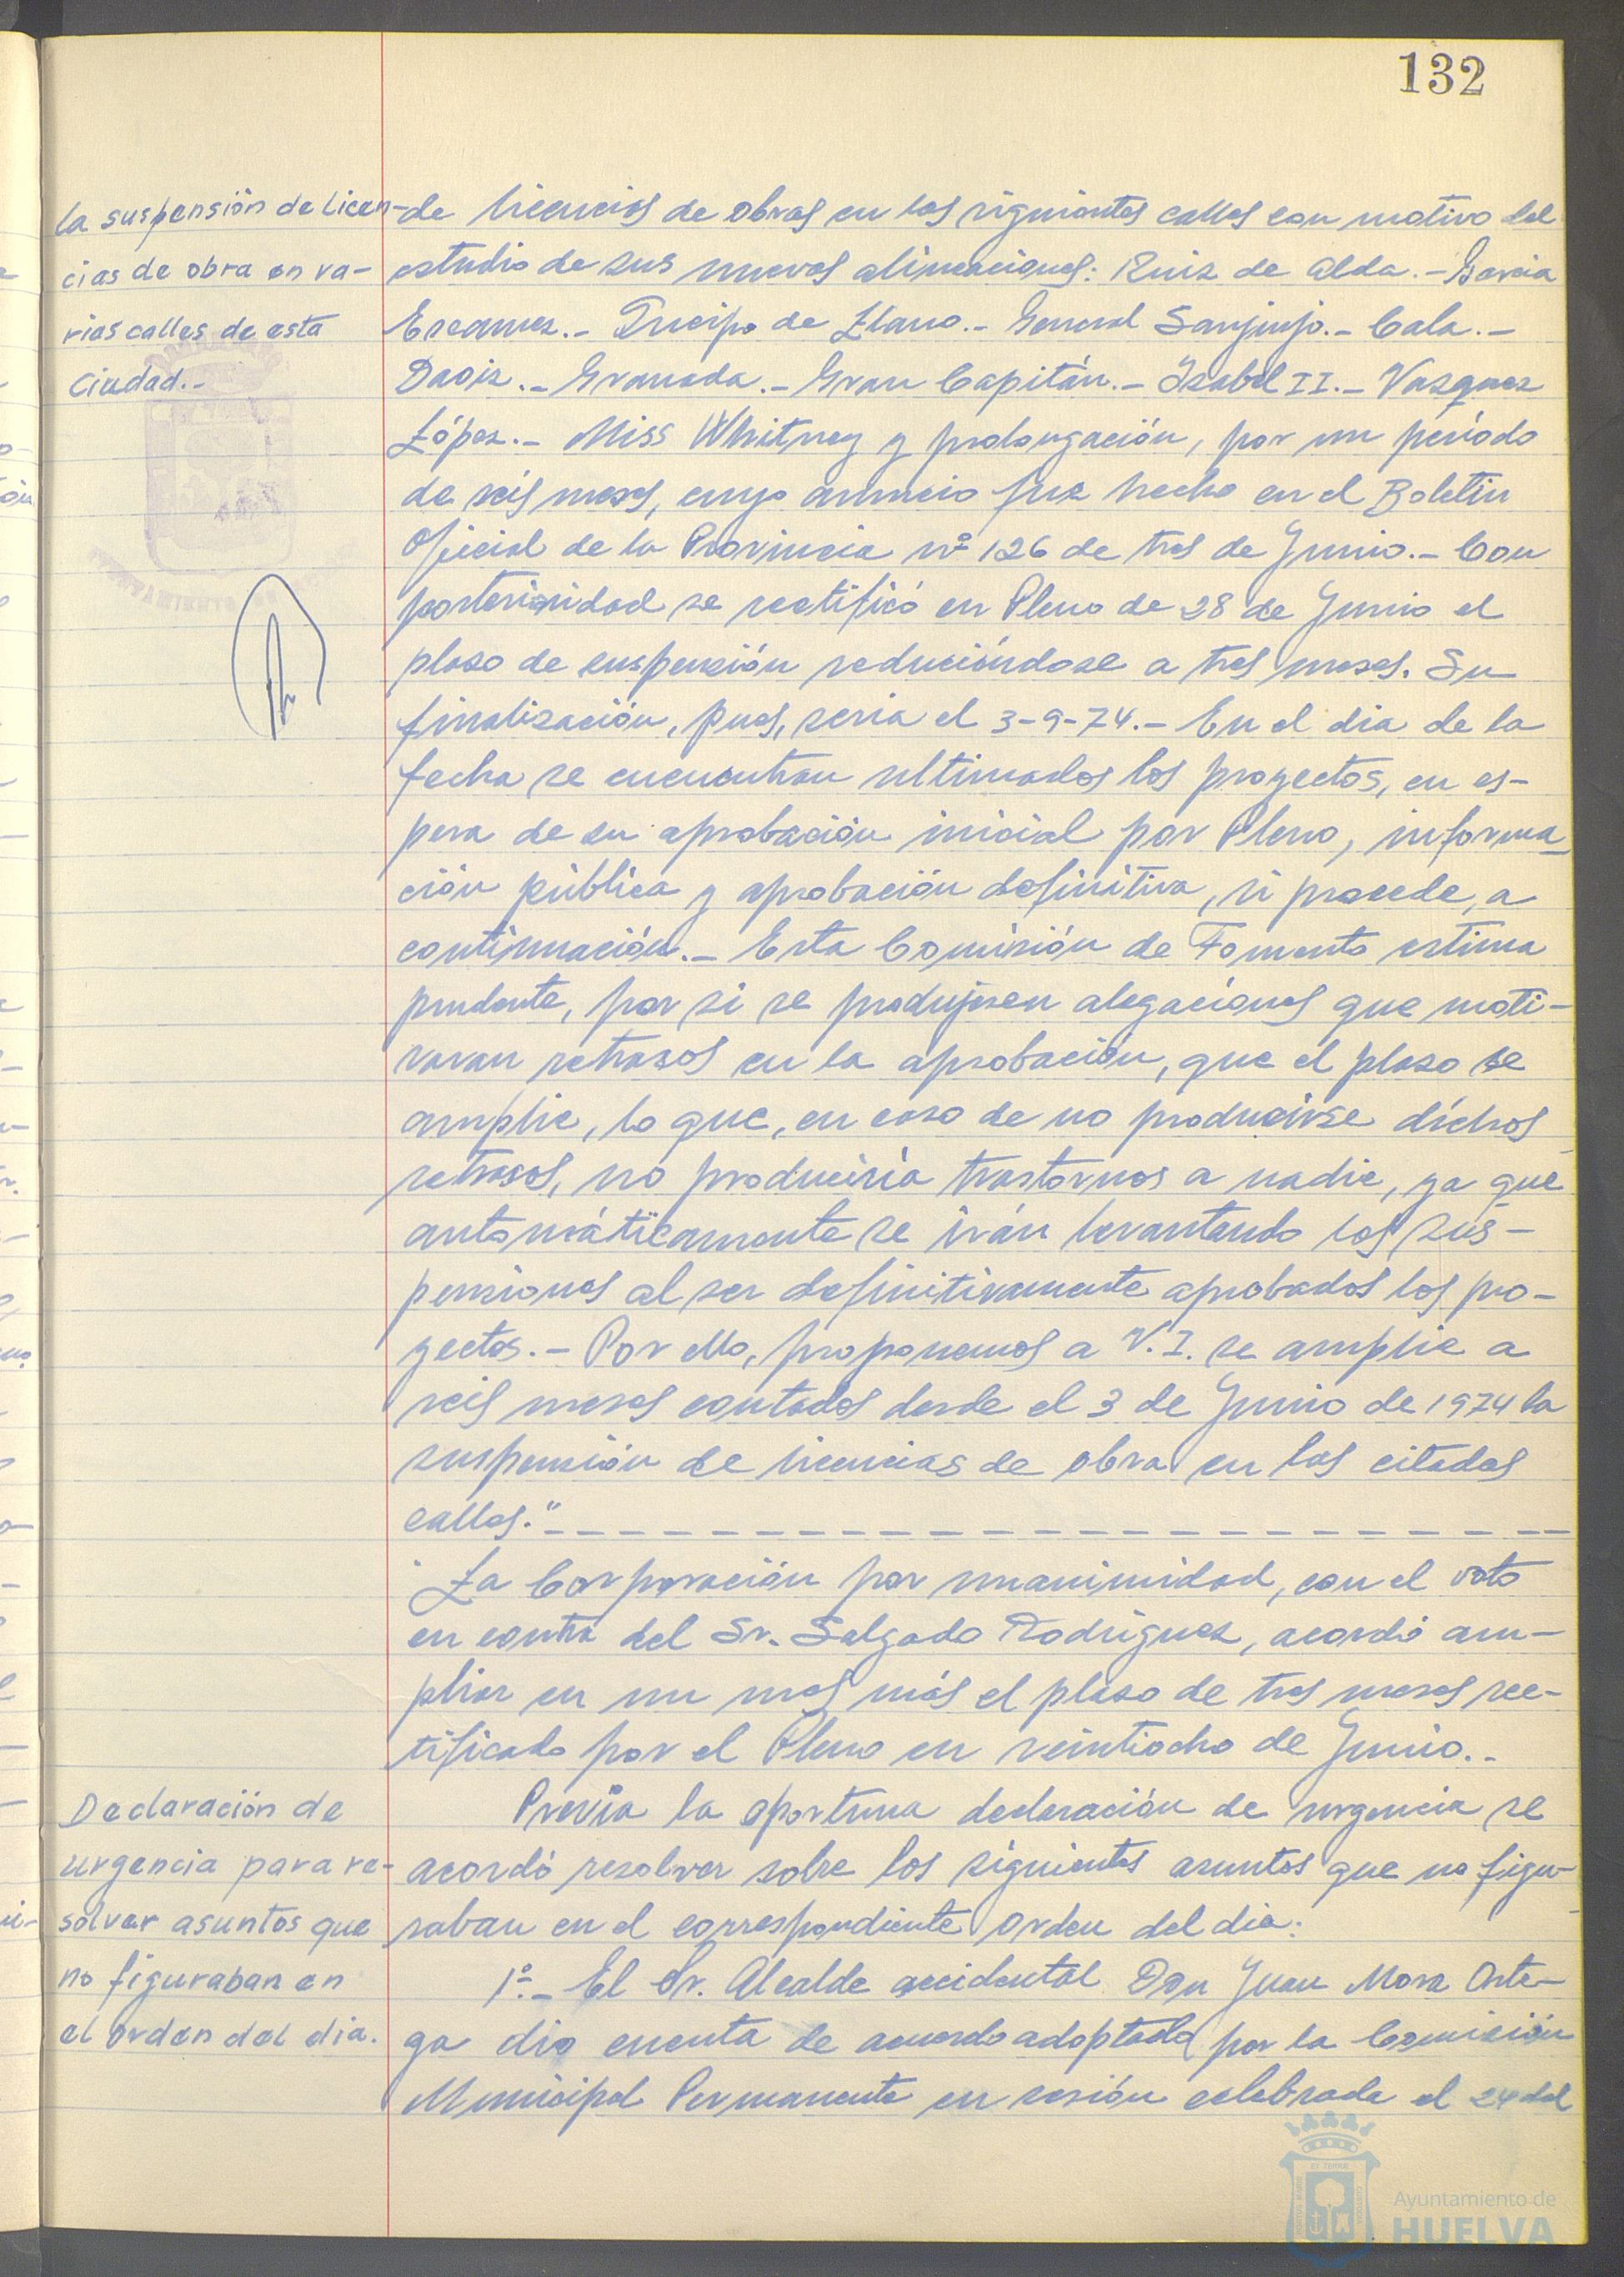 132
la suspensión de licen-
cias de obra en va-
rias calles de esta
Ciudad.-
de licencias de obras en las siguientes calles con motivo del
estudio de sus nuevas alineaciones: Ruiz de Alda.- Garcia
Ercamez.- Queipo de Llano.- General Sanjurjo.- Cala.-
Daoiz.- Granada.- Gran Capitán.- Isabel II.- Vazquez
López.- Miss Whitney y prolongación, por un período
de seis meses, cuyo anuncio fue hecho en el Boletin
Oficial de la Provincia nº 126 de tres de Junio.- Con
posterioridad se rectificó en Pleno de 28 de Junio el
plazo de suspensión reduciéndose a tres meses. Su
finalización, pues, seria el 3-9-74.- En el dia de la
fecha se encuentran ultimados los proyectos, en es-
pera de su aprobación inicial por Pleno, informa-
ción pública y aprobación definitiva, si procede, a
continuación.- Esta Comisión de Fomento estima
prudente, por si se produjesen alegaciones que moti-
varan retrasos en la aprobación, que el plazo se
amplie, lo que, en caso de no producirse dichos
retrasos, no produciría trastornos a nadie, ya que
automáticamente se irán levantando las sus-
pensiones al ser definitivamente aprobados los pro-
yectos.- Por ello, proponemos a V.I. se amplie a
seis meses contados desde el 3 de Junio de 1974 la
suspensión de licencias de obra en las citadas
calles."
La Corporación por unanimidad, con el voto
en contra del Sr. Salgado Rodriguez, acordó am-
pliar en un mes más el plazo de tres meses rec-
tificado por el Pleno en veintiocho de Junio.-
Declaración de
urgencia para re-
solver asuntos que
no figuraban en
el orden del dia.
Previa la oportuna declaración de urgencia se
acordó resolver sobre los siguientes asuntos que no figu-
raban en el correspondiente orden del dia:
1º.- El Sr. Alcalde accidental Don Juan Mora Orte-
ga dio cuenta de acuerdo adoptado por la Comisión
Municipal Permanente en sesión celebrada el 24 del
Ayuntamiento de
HUELVA